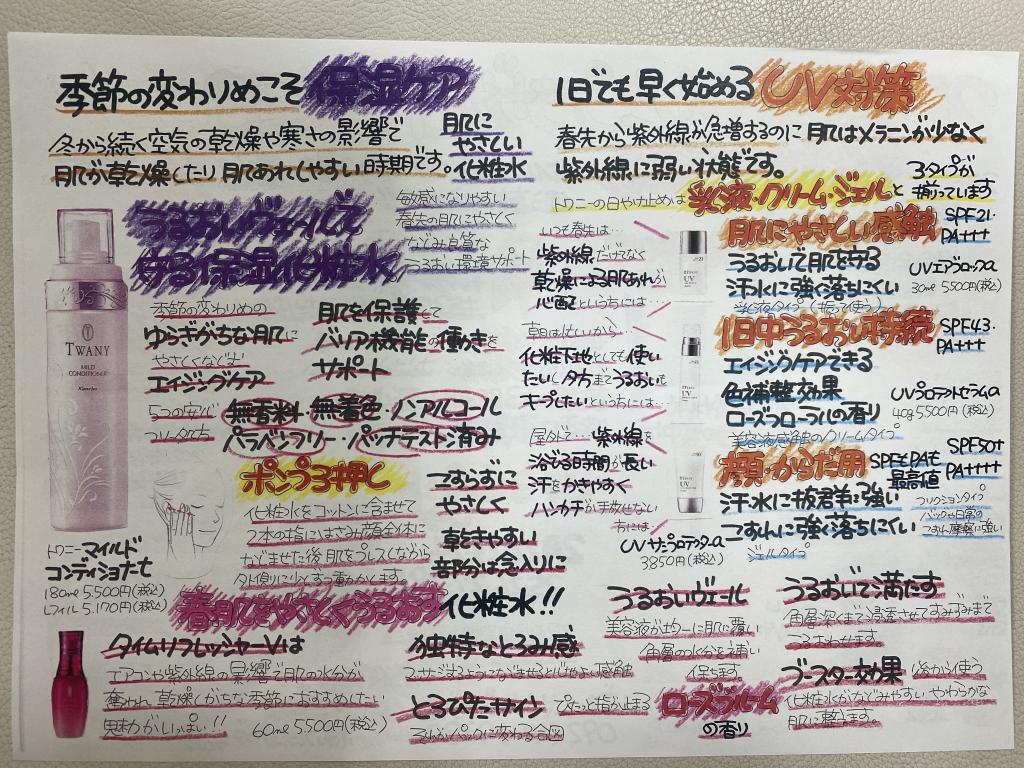 季節の変わりめこそ保湿ケア
冬から続く空気の乾燥や寒さの影響で
肌が乾燥したり肌あれしやすい時期です。
肌に
やさしい
化粧水
うるおいヴェールで
守る保湿化粧水
敏感になりやすい
春先の肌にやさしく
なじみ良質な
うるおい環境サポート
TWANY
MILD
CONDITIONER
Kanebo
季節の変わりめの
ゆらぎがちな肌に
やさしくなじむ
エイジングケア
肌を保護して
バリア機能の働きを
サポート
5つの
無香料・無着色・ノンアルコール
パラベンフリー・パッチテスト済み
ポンプ3押し
化粧水をコットンに含ませて
2本の指にはさみ顔全体に
なじませた後肌をプレスしながら
外側にりとすつ動かします。
こすらずに
やさしく
乾きやすい
部分は念入りに
トワニーマイルド
コンディショナーt
180ml 5.500円(税込)
レフィル 5.170円(税込)
春肌をやさしくうるおす化粧水!!
タイムリフレッシャーVは
エアコンや紫外線の影響で肌の水分が
奪われ乾燥しがちな季節におすすめしたい
魅力がいっぱい‥!!
60ml 5500円(税込)
独特なとろみ感
とろぴたサイン
でぴたっと指が止まる
とろみがパックに変わる合図
うるおいヴェール
美容液がカバーに肌に覆い
角層の水分を補い
保ちます
ローズブルーム
の香り
うるおいで満たす
角層深くまで浸透させてすみずみまで
うるおわせます
ブースター効果
後から使う
化粧水がなじみやすいやわらかな
肌に整えます。
1日でも早く始めるUV対策
春先から紫外線が急増するのに肌はメラニンが少なく
紫外線に弱い状態です。
トワニーの日やけ止めは乳液・クリーム・ジェルと
3タイプが
揃っています
いつも春先は…
紫外線だけでなく
乾燥による肌あれが
心配という方には…
肌にやさしい感触
SPF21・
PA+++
うるおいで肌を守る
汗水に強く落ちにくい
乳液タイプ(振って使う)
UVエアブロックa
30ml 5.500円(税込)
朝は忙しいから…
化粧下地としても使い
たいし夕方までうるおいも
キープしたいという方には…
日中うるおい持続
SPF43・
PA+++
エイジングケアできる
色補整効果
ローズフローラルの香り
美容液感触のクリームタイプ
UVプロテクトセラムa
40g 5.500円(税込)
屋外で…紫外線を
浴びる時間が長い
汗をかきやすく
ハンカチが手放せない
方には
UVサンプロテクターa
3850円(税込)
顔・からだ用
SPFもPAも
最高値
SPF50+
PA++++
汗・水に抜群に強い
こすれに強く落ちにくい
ジェルタイプ
フリクションタイプ
バッグや日常の
こすれ摩擦に強い